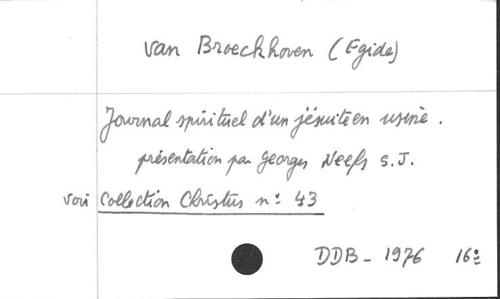 van Broeckhoven (Egide)
Journal spirituel d'un jésuite en usine.
présentation par Georges Neefs S.J.
voir Collection Christus n° 43
DDB - 1976 16°